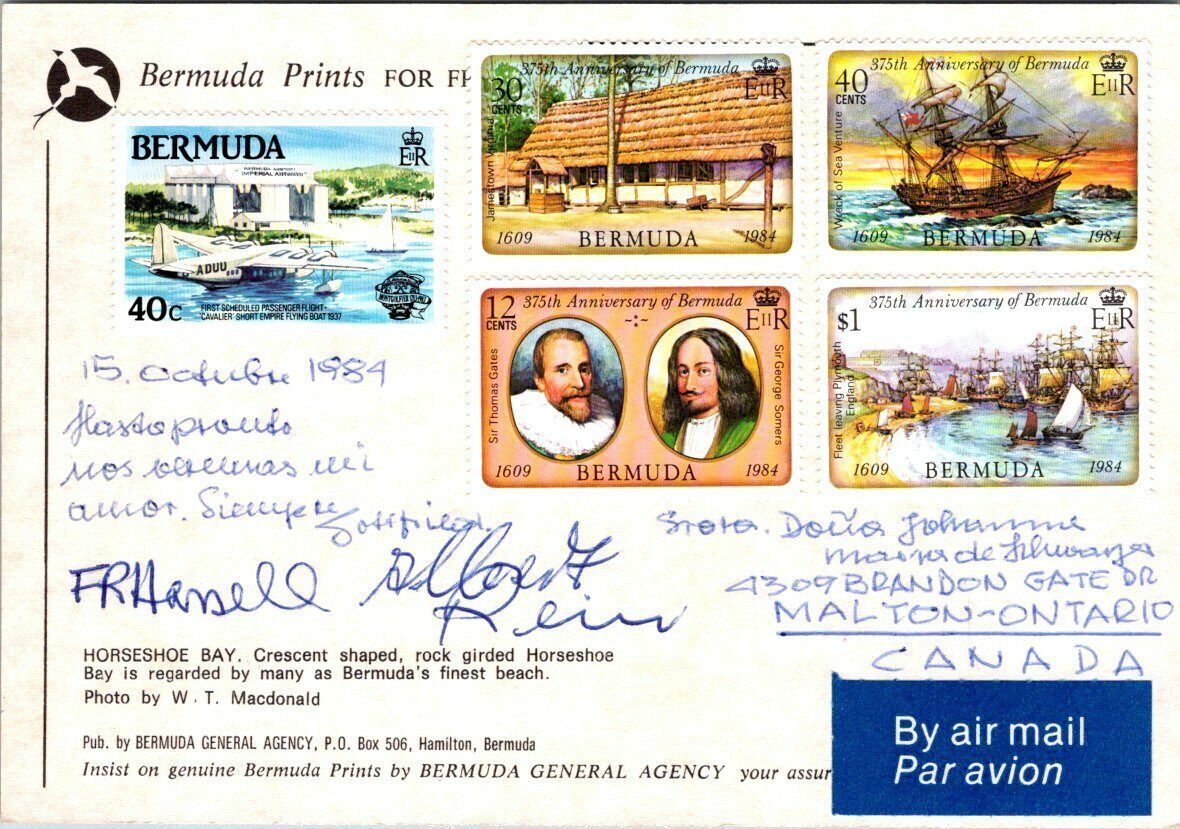 Bermuda Prints FOR
BERMUDA
EIIR
IMPERIAL AIRWAYS
ADUU
40c
FIRST SCHEDULED PASSENGER FLIGHT-
'CAVALIER' SHORT EMPIRE FLYING BOAT 1937
375th Anniversary of Bermuda
EIIR
30
CENTS
Jamestown
1609 BERMUDA 1984
375th Anniversary of Bermuda
EIIR
40
CENTS
Wreck of Sea Venture
1609 BERMUDA 1984
375th Anniversary of Bermuda
EIIR
12
CENTS
Sir Thomas Gates
Sir George Somers
1609 BERMUDA 1984
375th Anniversary of Bermuda
EIIR
$1
Fleet leaving Plymouth
England
1609 BERMUDA 1984
15. octubre 1984
Hasta pronto
nos vemos mi
amor. Siempre
FRHassell Albert
Rein
Srota. Doña Johanna
Maria de
4309 BRANDON GATE DR
MALTON-ONTARIO
CANADA
HORSESHOE BAY. Crescent shaped, rock girded Horseshoe
Bay is regarded by many as Bermuda's finest beach.
Photo by W. T. Macdonald
Pub. by BERMUDA GENERAL AGENCY, P.O. Box 506, Hamilton, Bermuda
Insist on genuine Bermuda Prints by BERMUDA GENERAL AGENCY your assur
By air mail
Par avion